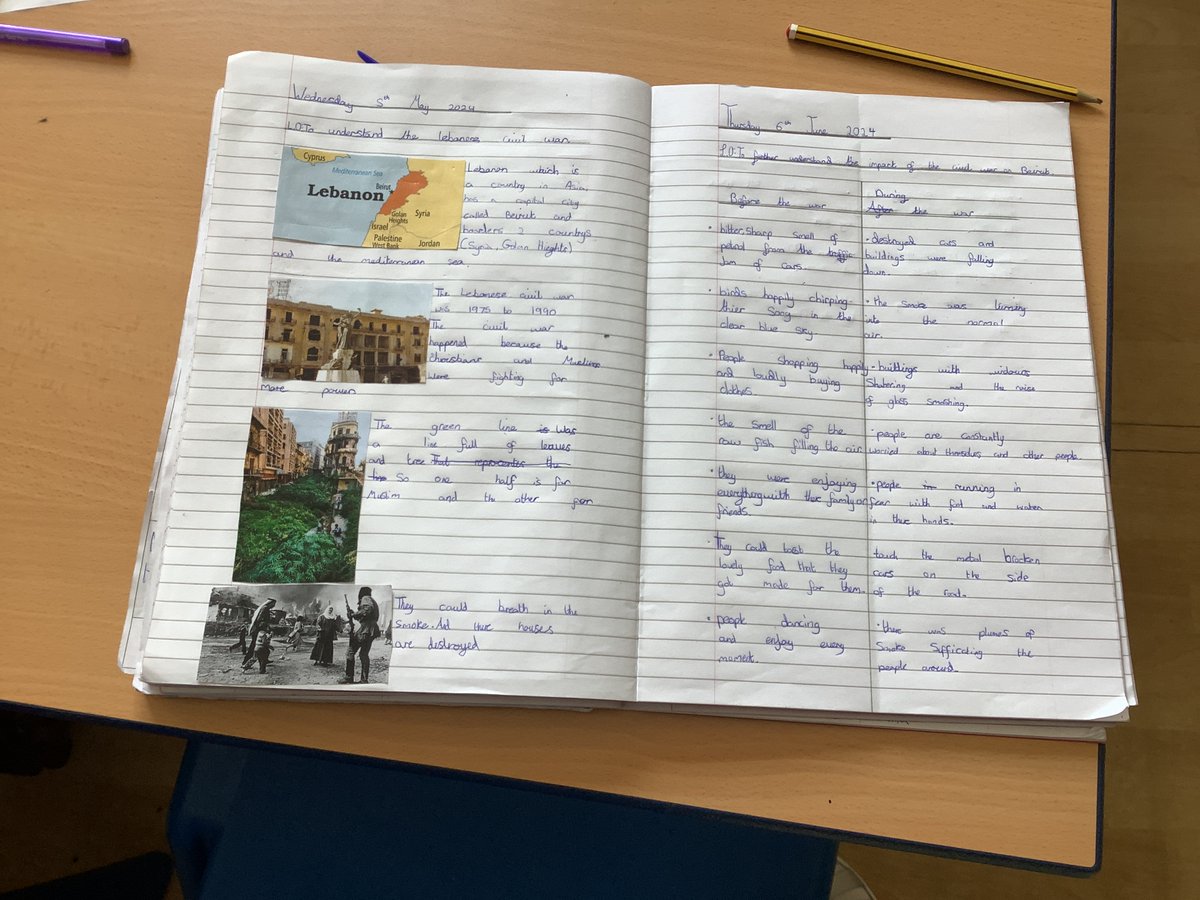 Wednesday 5th May 2024
L.O: To understand the lebanese civil war
Cyprus
Mediterranean Sea
Lebanon
Beirut
Golan
Heights
Syria
Israel
Palestine
West Bank
Jordan
Lebanon which is
a country in Asia
has a capital city
called Beirut and
boarders 2 countrys
(Syria, Golan Hieghts)
and the mediterranean sea.
The Lebanese civil war
was 1975 to 1990
The civil war
happened because the
and Muslims
were fighting for
more power
The green line is was
a line full of leaves
and tree That reprecentes the
So one half is for
Muslim and the other for
They could breath in the
smoke. And there houses
are destroyed
Thursday 6th June 2024
L.O: To further understand the impact of the civil war on Beirut.
Before the war
• bitter, sharp smell of
petrol from the traffic
Jam of cars.
• birds happily chirping
thier song in the
clear blue sky.
• People shopping happly
and loudly buying
clothes.
• the smell of the
raw fish filling the air
• they were enjoying
everything with their family or
friends.
• They could tast the
lovely food that they
got made for them.
• people dancing
and enjoy every
moment.
During
After the war
• destroyed cars and
buildings were falling
down.
• the smoke was
into the normal
air.
• buildings with windows
Shatering and the noise
of glass smashing.
• people are constantly
worried about themselves and other people.
• people running in
fear with food and water
in there hands.
touch the metal brocken
cars on the side
of the road.
• there was plumes of
Smoke Sufficating the
people around.